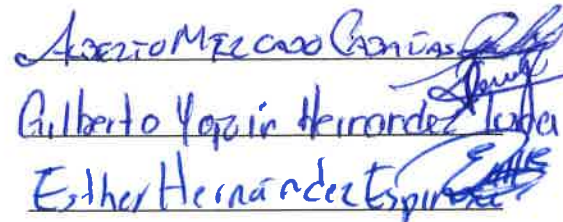 Alberto Mercado Cabañas
Gilberto Yaozin Hernandez
Esther Hernández Espinosa